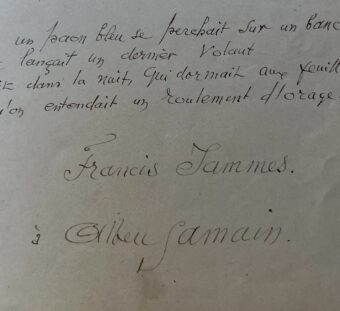 un paon bleu se perchait sur un banc
lançait un dernier volant
dans la nuit qui dormait aux feuill
'on entendait un roulement d'orage
Francis Jammes.
à Albert Samain.